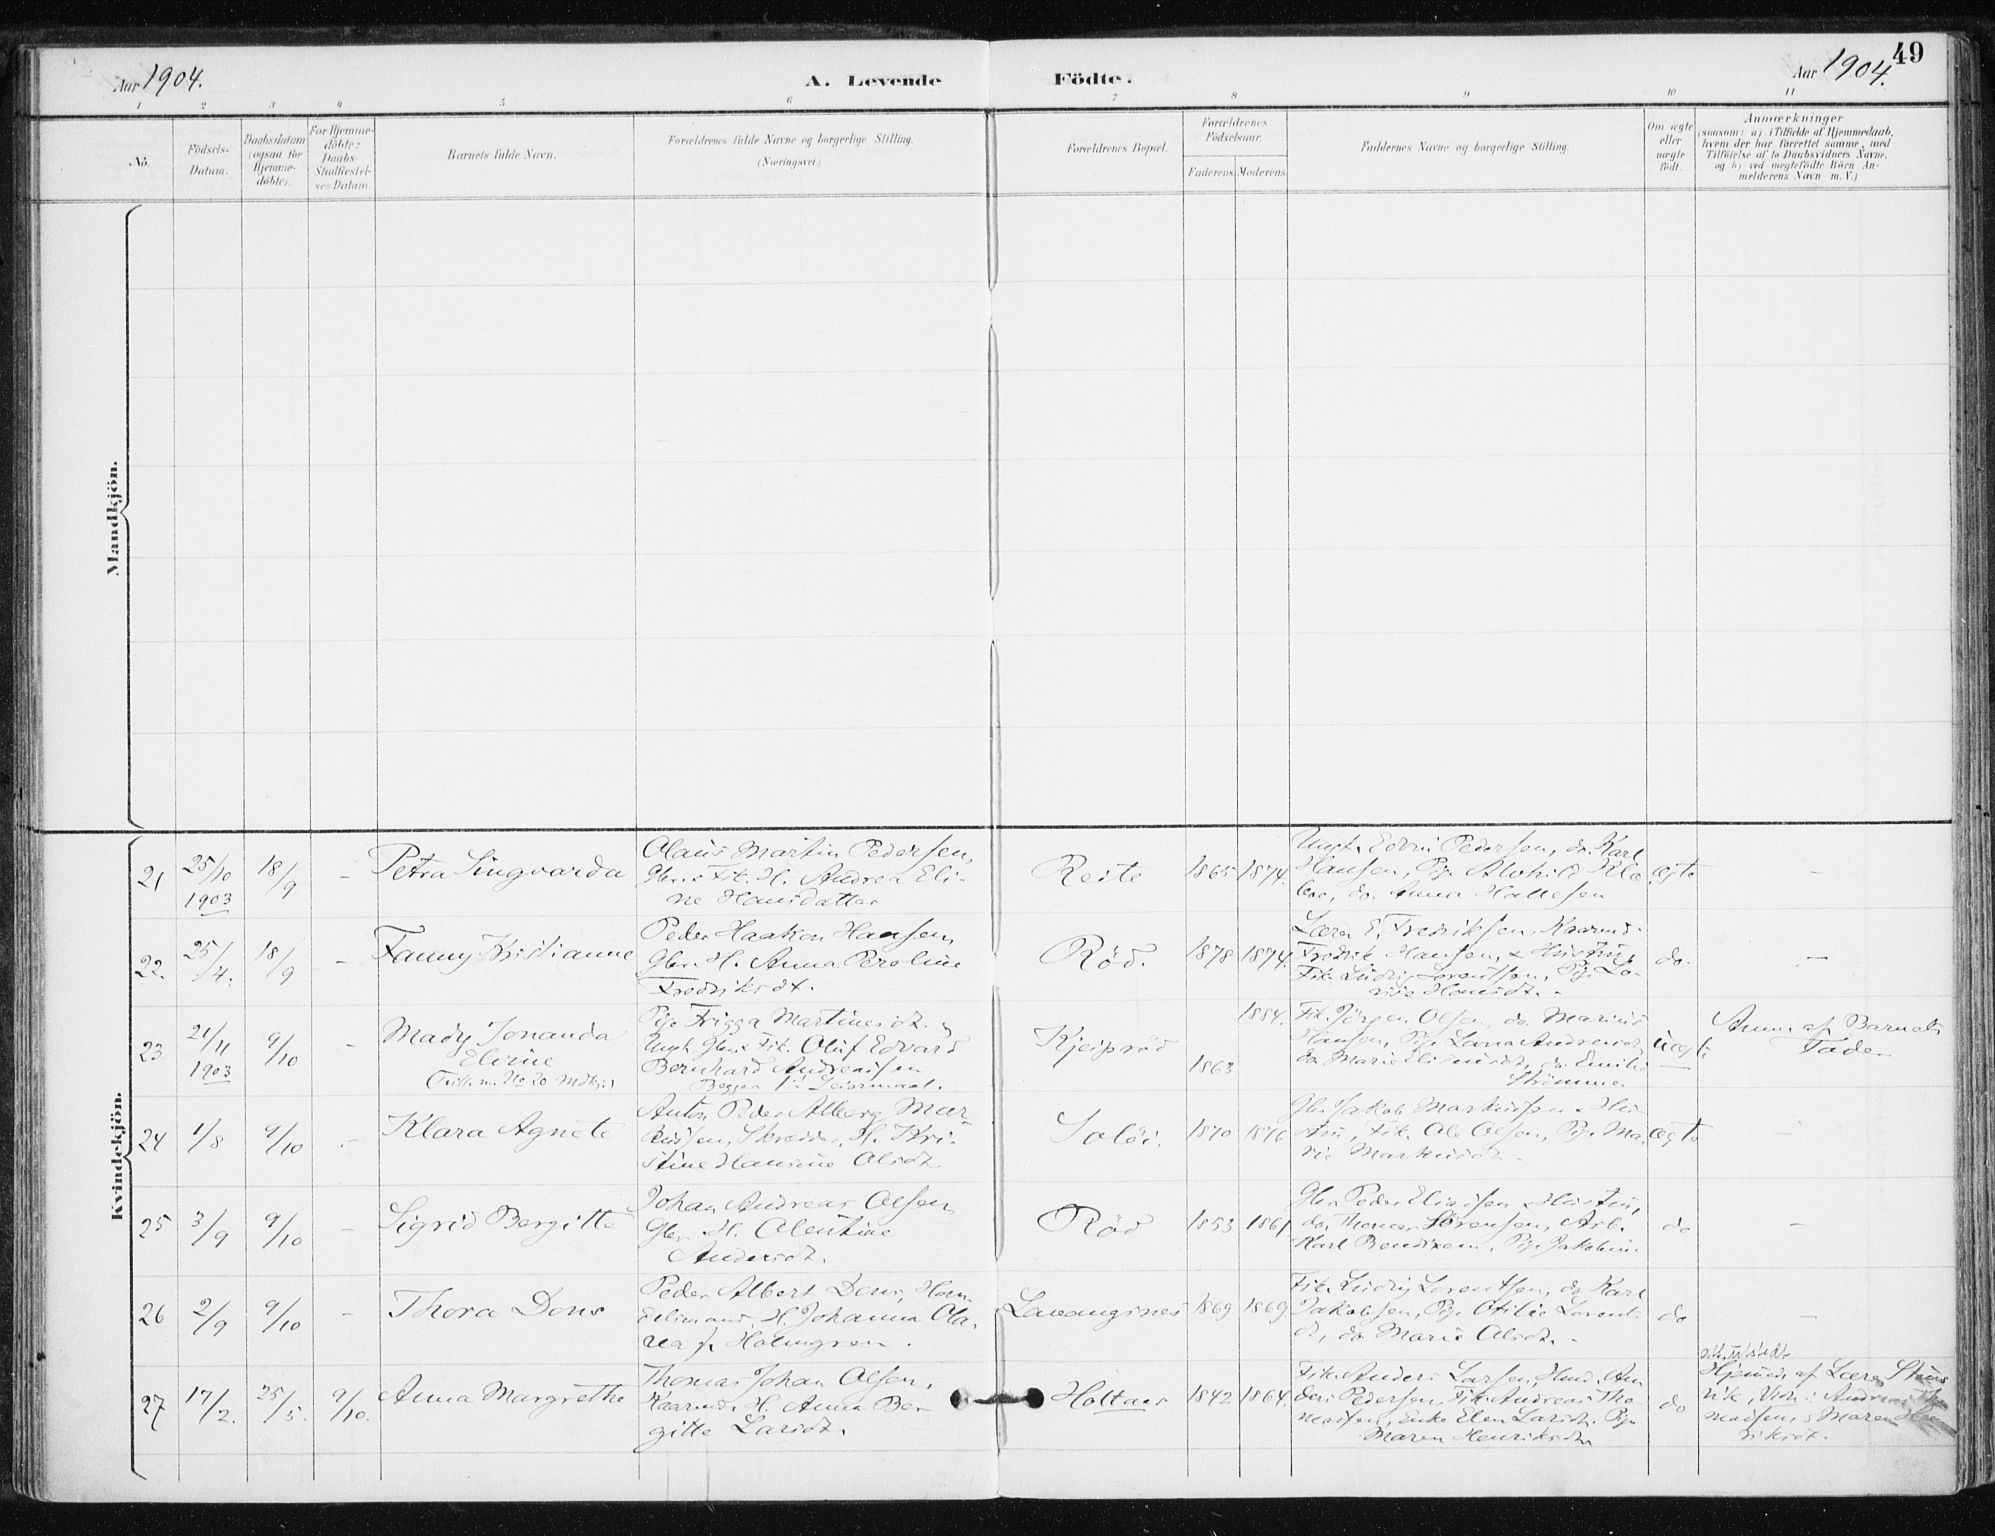 49
Aar 1904.
A. Levende Födte.
Aar 1904.
1 2 3 4 5 6 7 8 9 10 11
No.
Födsels-
Datum.
Daabsdatum
(ogsaa for
Hjemme-
döbte).
For Hjemme-
döbte:
Daabs-
Stadfæstel-
ses Datum.
Barnets fulde Navn.
Forældrenes fulde Navne og borgerlige Stilling.
(Næringsvei.)
Forældrenes Bopæl.
Forældrenes
Födselsaar.
Faderens.
Moderens.
Faddernes Navne og borgerlige Stilling.
Om ægte
eller
uægte
födt.
Anmærkninger
(saasom: a) i Tilfælde af Hjemmedaab,
hvem der har forrettet samme, med
Tilföielse af to Daabsvidners Navne,
og b) ved uægtefödte Börn An-
melderens Navn m. V.)
Mandkjön.
Kvindekjön.
21
25/10
1903
18/9
-
Petra Singvarda
Olaus Martin Pedersen,
Gbr. & Fik. H. Andrea Eli-
ne Hansdatter
Reite
1865
1874.
Ungk. Edvin Pedersen, do. Karl
Hansen, Pige Alvhild
do. Anna Hallesen
ægte
-
22.
25/4.
18/9
-
Fanny Kristianne
Peder Haakon Hansen,
Gbr. H. Anna Peroline
Fredriksdt.
Röd.
1878
1874.
Lærer E. Fredriksen, Kaarmd.
Fredrik Hansen, & Hustru,
Fik. Ludvig Lorentsen, Pige Lo-
vise Hansdt.
do.
-
23
21/11
1903
9/10
-
Mady Jonanda
Elvine
(Tvill. m. No 20 Mdkj.)
Pige Frigga Martinesdt. &
Ungk. Gbr. & Fik. Oluf Edvard
Bernhard Andreassen
Begges 1ste Leiermaal.
Kjeiprød
1863
1884.
Fik. Jörgen Olsen, do. Marius
Hansen, Pige Larna Andreasdt.
do. Marie Elisiusdt., do. Emilie
Strömme
uægte
Anm. af Barnets
Fader
24
1/8
9/10
-
Klara Agnete
Anton Peder Alberg Mar-
kussen, Skrædder, H. Kri-
stine Hansine Olsdt.
Solöi.
1870
1876
Gbr. Jakob Markussen & Hu-
stru, Fik. Ole Olsen, Pige Ma-
rie Markusdt.
ægte
-
25
3/9
9/10
-
Sigrid Bergitte
Johan Andreas Olsen,
Gbr. H. Olentine
Andersdt.
Röd
1853
1861
Gbr. Peder Eliassen & Hustru,
do. Thomas Sörensen, Arb.
Karl Bendixen, Pige
do
-
26
2/9
9/10
-
Thora Dons
Peder Albert Dons,
H. Johanna Ola-
rea f. Holmgren.
Lavangsnes
1869
1869.
Fik. Ludvig Lorentsen, do Karl
Jakobsen, Pige Otilie Lorents-
dt, do Marie Olsdt.
do
-
27
17/2.
25/5.
9/10.
Anna Margrethe
Thomas Johan Olsen,
Kaarmd. H. Anna Ber-
gitte Larsdt.
Holtaas
1842
1864.
Fik. Anders Larsen, Hmd. An-
ders Pedersen, Fik. Andreas Tho-
massen, Enke Elen Larsdt. Pige
Maren Henriksdt.
do
Att. udstedt
Hjemmed. af Lærer Steins-
vik, Vidn.: Andreas Tho-
massen, & Maren Hen-
riksdt.